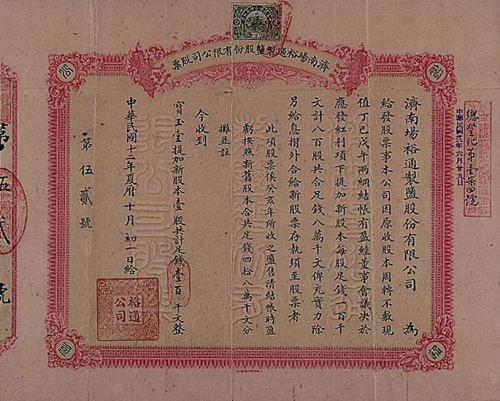 濟南場裕通製鹽股份有限公司股票
濟南場裕通製鹽股份有限公司 為
給發股票事本公司因原收股本周轉不敷現
值丁巳戊午兩綱結帳有盈經董事會議決於
應發紅利項下提加新股本每股足錢一百千
文計八百股共合足錢八萬千文俾充實力除
另給息摺外合給新股票存執須至股票者
此項股票俟癸亥年所收之鹽售清結帳時盈
虧按照新舊股本合共足錢四拾八萬千文分
攤並註
今收到
寶玉堂提加新股本壹股共計足錢壹百千文整
中華民國十二年夏曆十月初一日給
第伍貳號
裕通
公司
第伍貳號